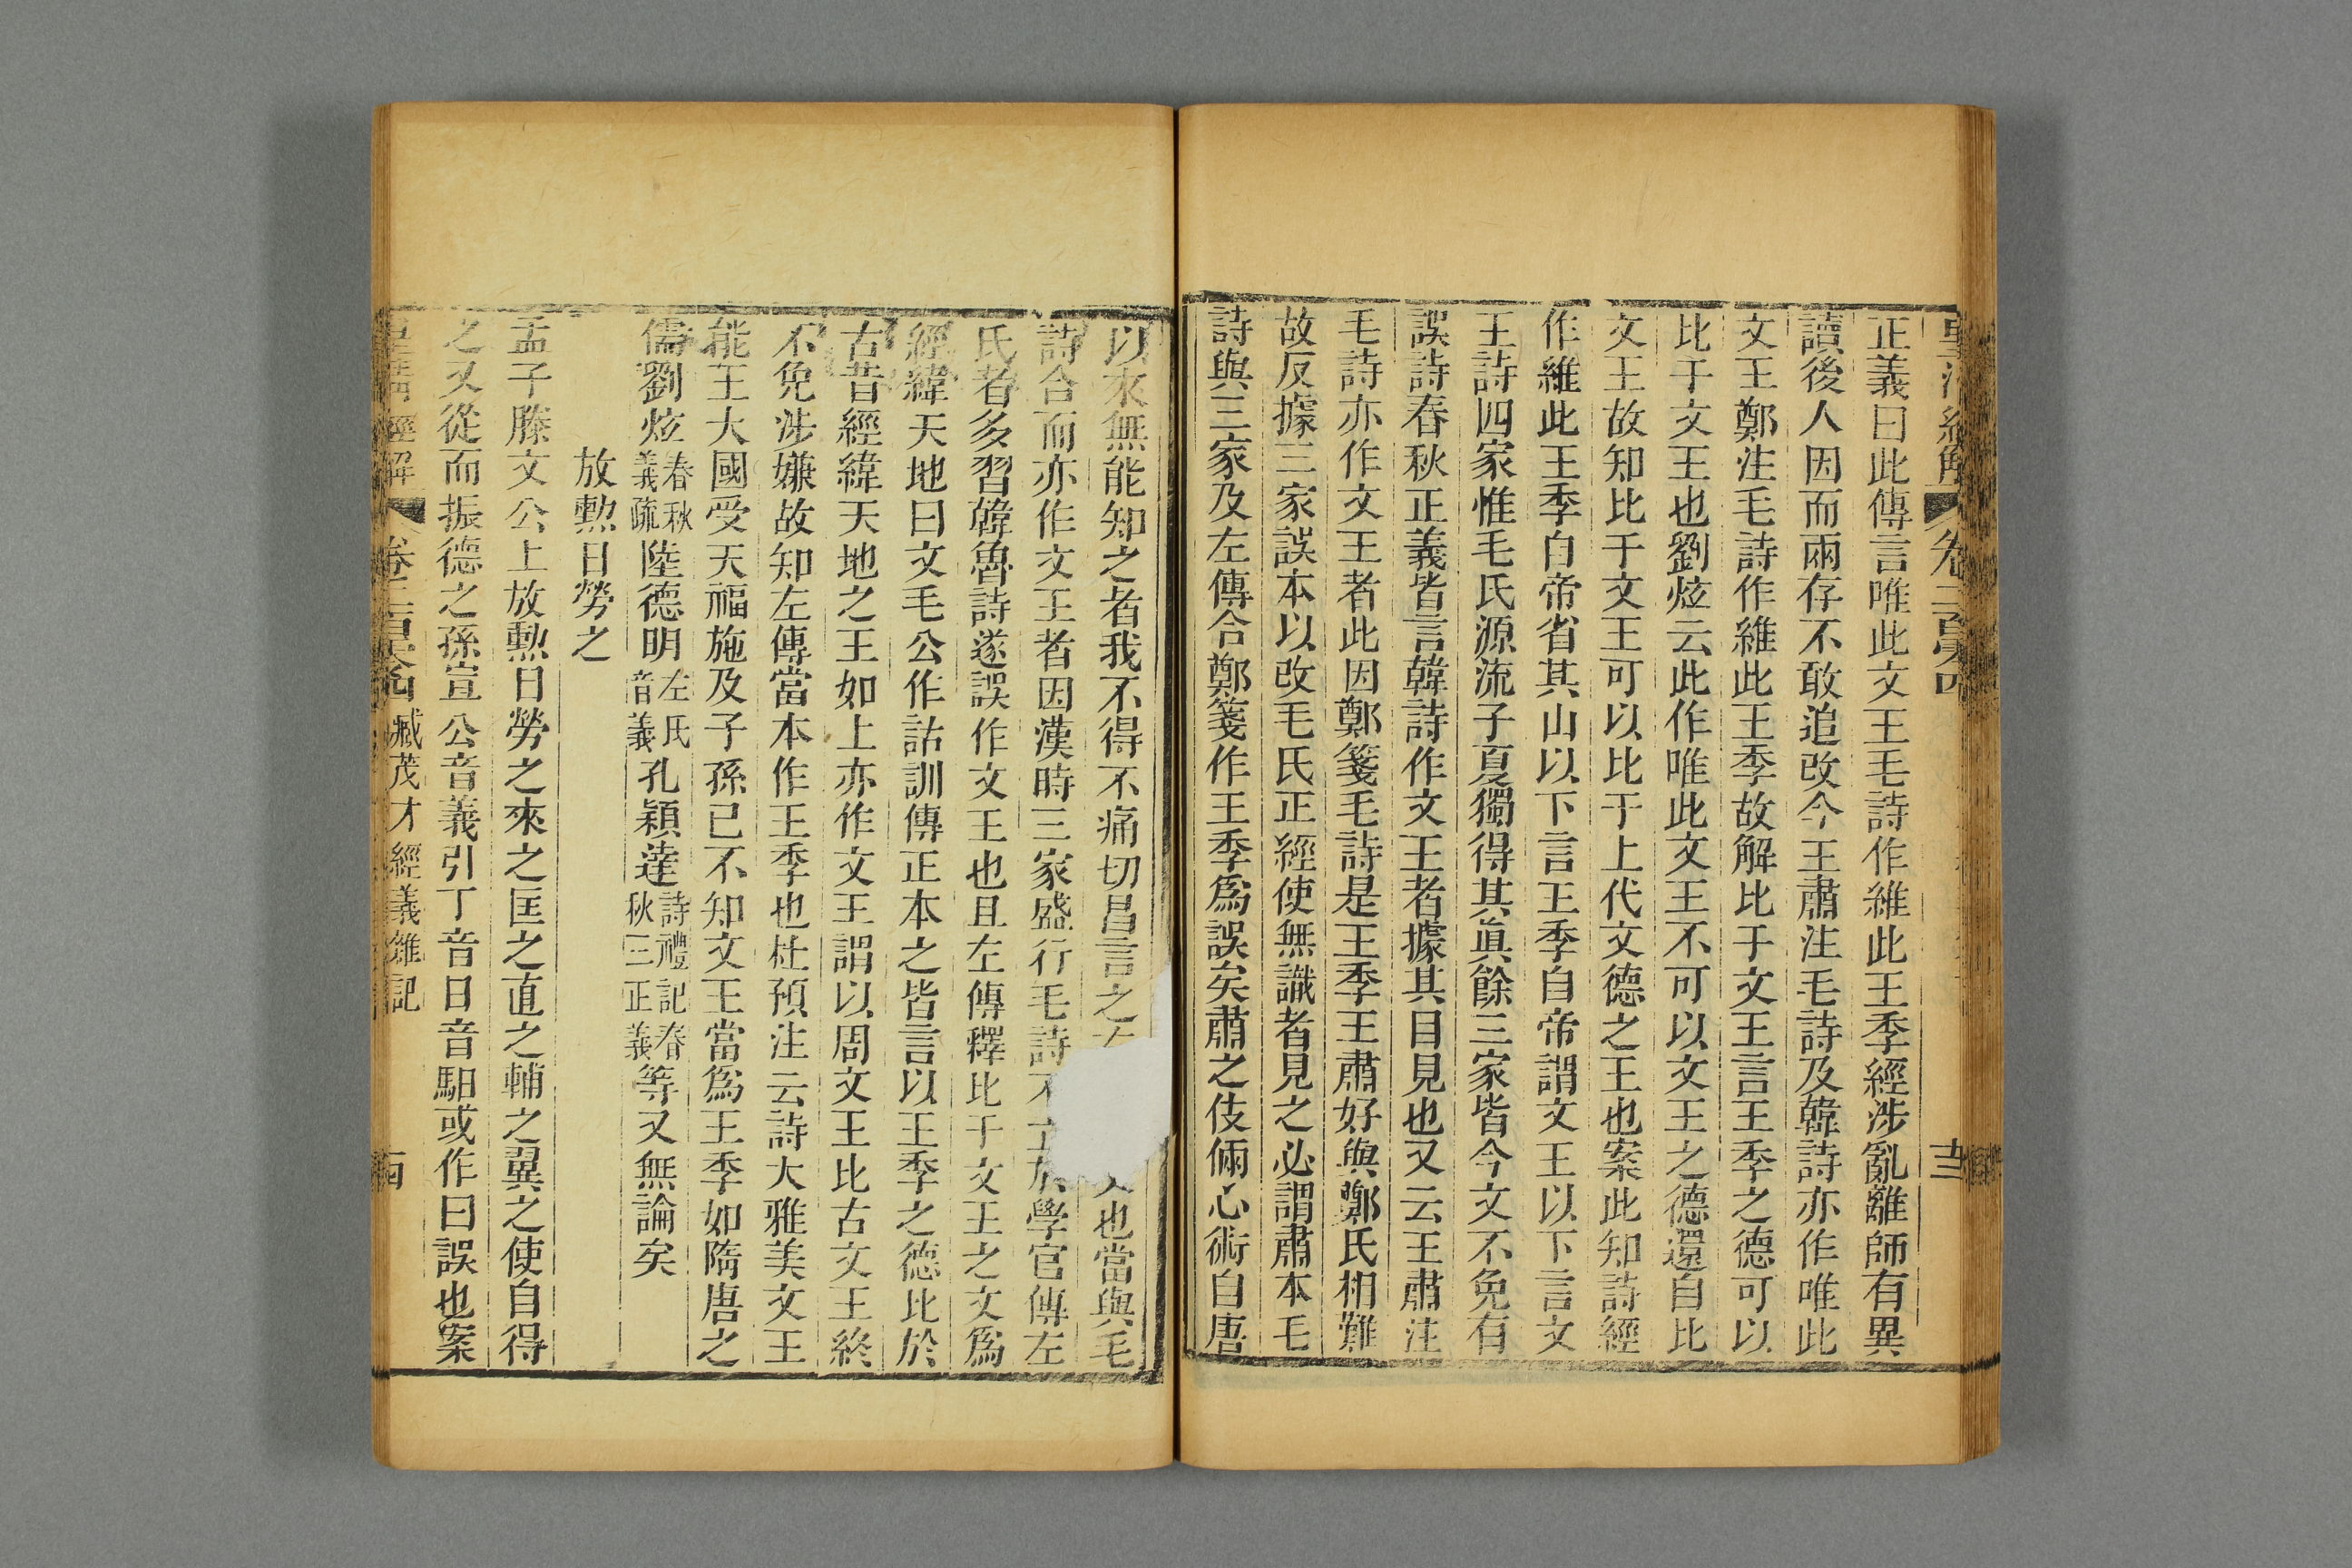 皇清經解 卷二百四 十三
正義曰此傳言唯此文王毛詩作維此王季經涉亂離師有異
讀後人因而兩存不敢追改今王肅注毛詩及韓詩亦作唯此
文王鄭注毛詩作維此王季故解比于文王言王季之德可以
比于文王也劉炫云此作唯此文王不可以文王之德還自比
文王故知比于文王可以比于上代文德之王也案此知詩經
作維此王季白帝省其山以下言王季自帝謂文王以下言文
王詩四家惟毛氏源流子夏獨得其眞餘三家皆今文不免有
誤詩春秋正義皆言韓詩作文王者據其目見也又云王肅注
毛詩亦作文王者此因鄭箋毛詩是王季王肅好與鄭氏相難
故反據三家誤本以改毛氏正經使無識者見之必謂肅本毛
詩與三家及左傳合鄭箋作王季爲誤矣肅之伎倆心術自唐
以來無能知之者我不得不痛切昌言之 也當與毛
詩合而亦作文王者因漢時三家盛行毛詩不 於學官傳左
氏者多習韓魯詩遂誤作文王也且左傳釋比于文王之文爲
經緯天地曰文毛公作詁訓傳正本之皆言以王季之德比於
古昔經緯天地之王如上亦作文王謂以周文王比古文王終
不免涉嫌故知左傳當本作王季也杜預注云詩大雅美文王
能王大國受天福施及子孫已不知文王當爲王季如隋唐之
儒劉炫春秋義疏陸德明左氏音義孔穎達詩禮記春秋三正義等又無論矣
放勲日勞之
孟子滕文公上放勲日勞之來之匡之直之輔之翼之使自得
之又從而振德之孫宣公音義引丁音日音馹或作曰誤也案
皇清經解 卷 臧茂才經義雜記 十四